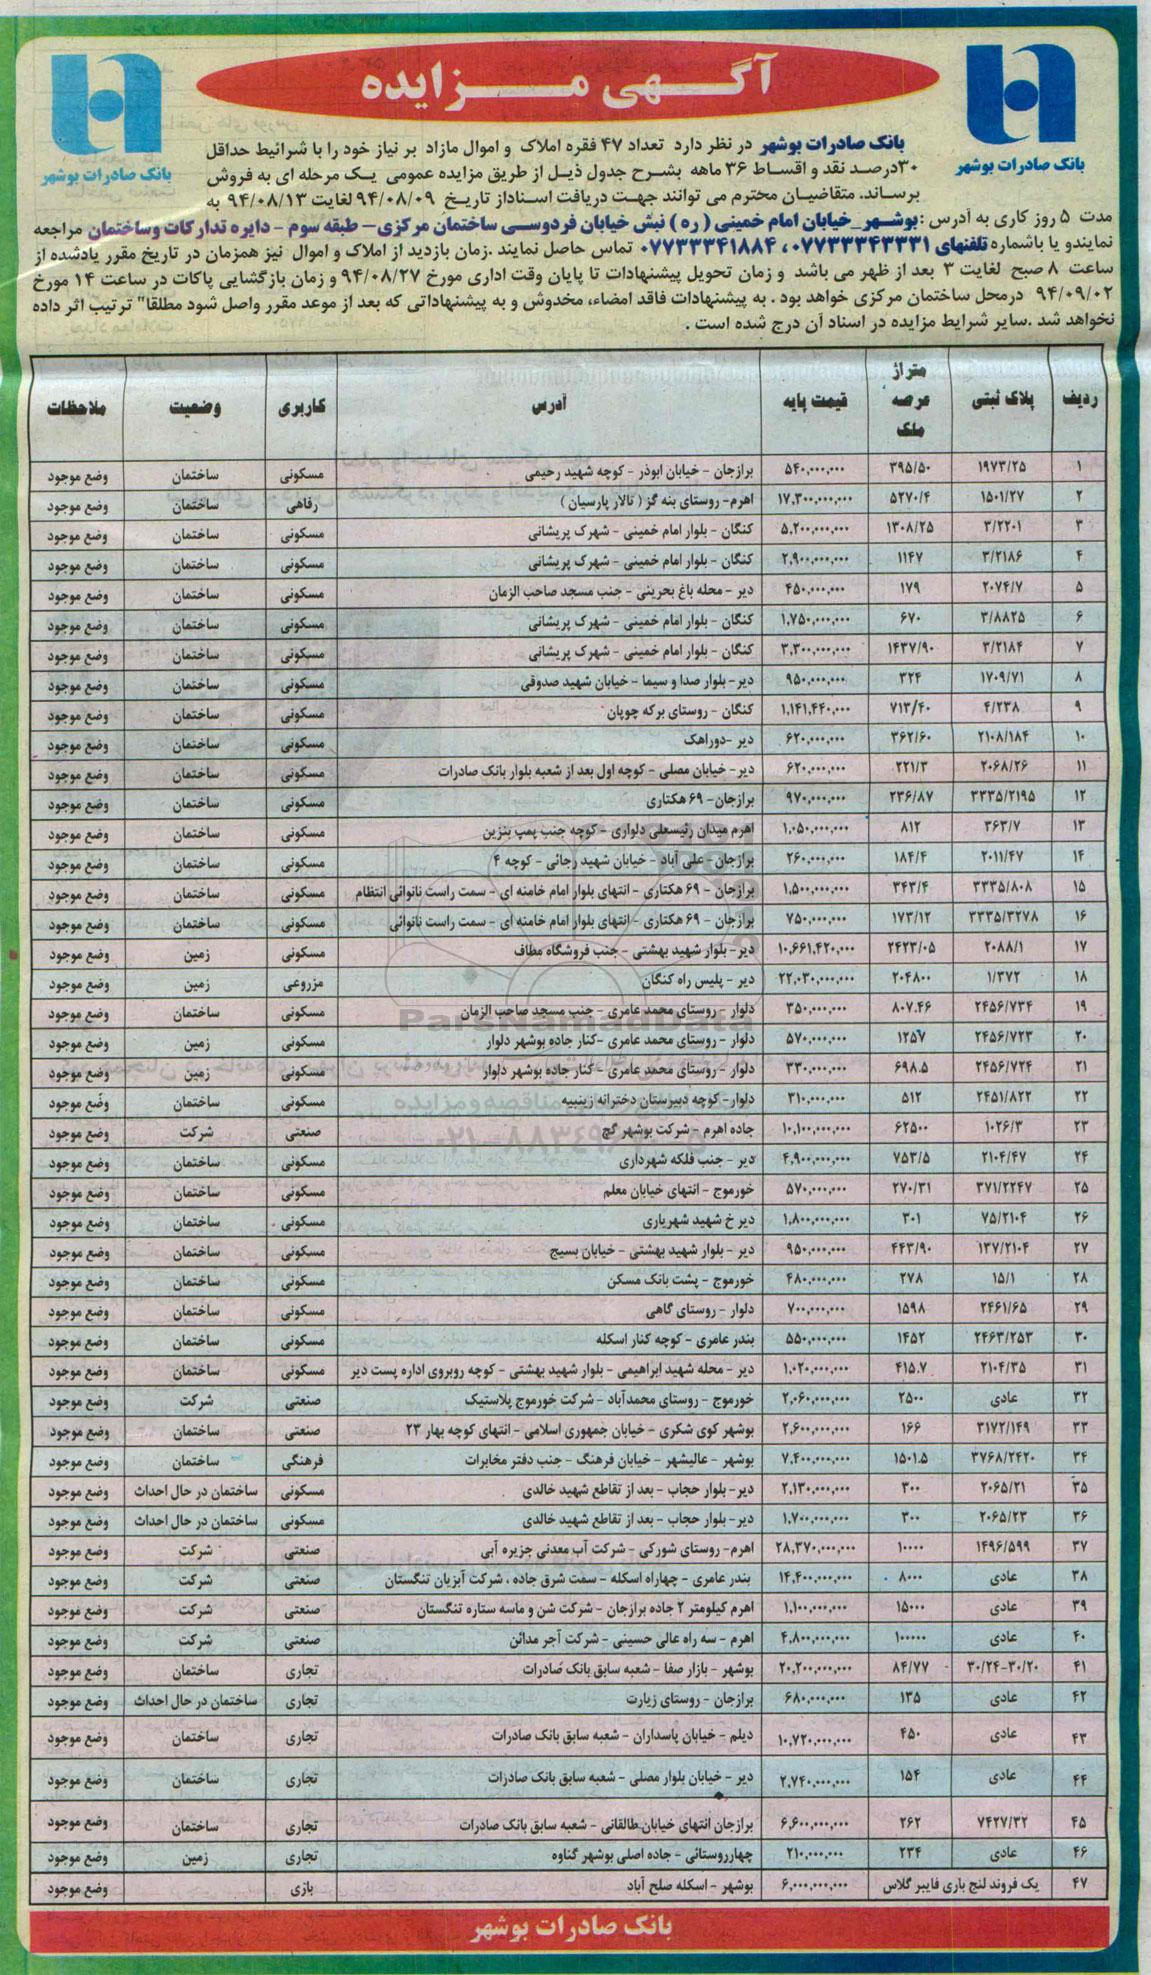 آگهی مزایده
بانک صادرات بوشهر
بانک صادرات بوشهر
بانک صادرات بوشهر در نظر دارد تعداد ۴۷ فقره املاک و اموال مازاد بر نیاز خود را با شرائیط حداقل
۳۰درصد نقد و اقساط ۳۶ ماهه بشرح جدول ذیل از طریق مزایده عمومی یک مرحله ای به فروش
برساند. متقاضیان محترم می توانند جهت دریافت اسناداز تاریخ ۹۴/۰۸/۰۹ لغایت ۹۴/۰۸/۱۳ به
مدت ۵ روز کاری به آدرس :بوشهر_خیابان امام خمینی ( ره ) نبش خیابان فردوسی ساختمان مرکزی– طبقه سوم - دایره تدارکات وساختمان مراجعه
نمایندو یا باشماره تلفنهای ۰۷۷۳۳۳۴۳۳۳۱ ، ۰۷۷۳۳۳۴۱۸۸۴ تماس حاصل نمایند .زمان بازدید از املاک و اموال نیز همزمان در تاریخ مقرر یادشده از
ساعت ۸ صبح لغایت ۳ بعد از ظهر می باشد و زمان تحویل پیشنهادات تا پایان وقت اداری مورخ ۹۴/۰۸/۲۷ و زمان بازگشایی پاکات در ساعت ۱۴ مورخ
۹۴/۰۹/۰۲ درمحل ساختمان مرکزی خواهد بود . به پیشنهادات فاقد امضاء، مخدوش و به پیشنهاداتی که بعد از موعد مقرر واصل شود مطلقا" ترتیب اثر داده
نخواهد شد .سایر شرایط مزایده در اسناد آن درج شده است .
ردیف پلاک ثبتی متراژ عرصه ملک قیمت پایه آدرس کاربری وضعیت ملاحظات
۱ ۱۹۷۳/۲۵ ۳۹۵/۵۰ ۵۴۰,۰۰۰,۰۰۰ برازجان - خیابان ابوذر - کوچه شهید رحیمی مسکونی ساختمان وضع موجود
۲ ۱۵۰۱/۲۷ ۵۲۷۰/۴ ۱۷,۳۰۰,۰۰۰,۰۰۰ اهرم- روستای بنه گز ( تالار پارسیان ) رفاهی ساختمان وضع موجود
۳ ۳/۲۲۰۱ ۱۳۰۸/۲۵ ۵,۲۰۰,۰۰۰,۰۰۰ کنگان - بلوار امام خمینی - شهرک پریشانی مسکونی ساختمان وضع موجود
۴ ۳/۲۱۸۶ ۱۱۴۷ ۲,۹۰۰,۰۰۰,۰۰۰ کنگان - بلوار امام خمینی - شهرک پریشانی مسکونی ساختمان وضع موجود
۵ ۲۰۷۴/۷ ۱۷۹ ۴۵۰,۰۰۰,۰۰۰ دیر - محله باغ بحرینی - جنب مسجد صاحب الزمان مسکونی ساختمان وضع موجود
۶ ۳/۸۸۲۵ ۶۷۰ ۱,۷۵۰,۰۰۰,۰۰۰ کنگان - بلوار امام خمینی - شهرک پریشانی مسکونی ساختمان وضع موجود
۷ ۳/۲۱۸۴ ۱۴۳۷/۹۰ ۳,۳۰۰,۰۰۰,۰۰۰ کنگان - بلوار امام خمینی - شهرک پریشانی مسکونی ساختمان وضع موجود
۸ ۱۷۰۹/۷۱ ۳۲۴ ۹۵۰,۰۰۰,۰۰۰ دیر- بلوار صدا و سیما - خیابان شهید صدوقی مسکونی ساختمان وضع موجود
۹ ۴/۲۳۸ ۷۱۳/۴۰ ۱,۱۴۱,۴۴۰,۰۰۰ کنگان - روستای برکه چوپان مسکونی ساختمان وضع موجود
۱۰ ۲۱۰۸/۱۸۴ ۳۶۲/۶۰ ۶۲۰,۰۰۰,۰۰۰ دیر -دوراهک مسکونی ساختمان وضع موجود
۱۱ ۲۰۶۸/۲۶ ۲۲۱/۳ ۶۲۰,۰۰۰,۰۰۰ دیر- خیابان مصلی - کوچه اول بعد از شعبه بلوار بانک صادرات مسکونی ساختمان وضع موجود
۱۲ ۳۳۳۵/۲۱۹۵ ۲۳۶/۸۷ ۹۷۰,۰۰۰,۰۰۰ برازجان- ۶۹ هکتاری مسکونی ساختمان وضع موجود
۱۳ ۳۶۳/۷ ۸۱۲ ۱,۰۵۰,۰۰۰,۰۰۰ اهرم میدان رئیسعلی دلواری - کوچه جنب پمپ بنزین مسکونی ساختمان وضع موجود
۱۴ ۲۰۱۱/۴۷ ۱۸۴/۴ ۲۶۰,۰۰۰,۰۰۰ برازجان- علی آباد - خیابان شهید رجائی - کوچه ۴ مسکونی ساختمان وضع موجود
۱۵ ۳۳۳۵/۸۰۸ ۳۴۳/۴ ۱,۵۰۰,۰۰۰,۰۰۰ برازجان - ۶۹ هکتاری - انتهای بلوار امام خامنه ای - سمت راست نانوائی انتظام مسکونی ساختمان وضع موجود
۱۶ ۳۳۳۵/۳۲۷۸ ۱۷۳/۱۲ ۷۵۰,۰۰۰,۰۰۰ برازجان - ۶۹ هکتاری - انتهای بلوار امام خامنه ای - سمت راست نانوائی مسکونی ساختمان وضع موجود
۱۷ ۲۰۸۸/۱ ۲۴۲۳/۰۵ ۱۰,۶۶۱,۴۲۰,۰۰۰ دیر- بلوار شهید بهشتی - جنب فروشگاه مطاف مسکونی زمین وضع موجود
۱۸ ۱/۳۷۲ ۲۰۴۸۰۰ ۲۲,۰۳۰,۰۰۰,۰۰۰ دیر - پلیس راه کنگان مزروعی زمین وضع موجود
۱۹ ۲۴۵۶/۷۳۴ ۸۰۷.۴۶ ۳۵۰,۰۰۰,۰۰۰ دلوار - روستای محمد عامری - جنب مسجد صاحب الزمان مسکونی ساختمان وضع موجود
۲۰ ۲۴۵۶/۷۲۳ ۱۲۵۷ ۵۷۰,۰۰۰,۰۰۰ دلوار - روستای محمد عامری -کنار جاده بوشهر دلوار مسکونی زمین وضع موجود
۲۱ ۲۴۵۶/۷۲۴ ۶۹۸.۵ ۳۳۰,۰۰۰,۰۰۰ دلوار - روستای محمد عامری - کنار جاده بوشهر دلوار مسکونی زمین وضع موجود
۲۲ ۲۴۵۱/۸۲۲ ۵۱۲ ۳۱۰,۰۰۰,۰۰۰ دلوار- کوچه دبیرستان دخترانه زینبیه مسکونی ساختمان وضع موجود
۲۳ ۱۰۲۶/۳ ۶۲۵۰۰ ۱۰,۱۰۰,۰۰۰,۰۰۰ جاده اهرم - شرکت بوشهر گچ صنعتی شرکت وضع موجود
۲۴ ۲۱۰۴/۴۷ ۷۵۳/۵ ۴,۹۰۰,۰۰۰,۰۰۰ دیر - جنب فلکه شهرداری مسکونی ساختمان وضع موجود
۲۵ ۳۷۱/۲۲۴۷ ۲۷۰/۳۱ ۵۷۰,۰۰۰,۰۰۰ خورموج - انتهای خیابان معلم مسکونی ساختمان وضع موجود
۲۶ ۷۵/۲۱۰۴ ۳۰۱ ۱,۸۰۰,۰۰۰,۰۰۰ دیر خ شهید شهریاری مسکونی ساختمان وضع موجود
۲۷ ۱۳۷/۲۱۰۴ ۴۴۳/۹۰ ۹۵۰,۰۰۰,۰۰۰ دیر - بلوار شهید بهشتی - خیابان بسیج مسکونی ساختمان وضع موجود
۲۸ ۱۵/۱ ۲۷۸ ۴۸۰,۰۰۰,۰۰۰ خورموج - پشت بانک مسکن مسکونی ساختمان وضع موجود
۲۹ ۲۴۶۱/۶۵ ۱۵۹۸ ۷۰۰,۰۰۰,۰۰۰ دلوار - روستای گاهی مسکونی ساختمان وضع موجود
۳۰ ۲۴۶۳/۲۵۳ ۱۴۵۲ ۵۵۰,۰۰۰,۰۰۰ بندر عامری - کوچه کنار اسکله مسکونی ساختمان وضع موجود
۳۱ ۲۱۰۴/۳۵ ۴۱۵.۷ ۱,۰۲۰,۰۰۰,۰۰۰ دیر - محله شهید ابراهیمی - بلوار شهید بهشتی - کوچه روبروی اداره پست دیر مسکونی ساختمان وضع موجود
۳۲ عادی ۲۵۰۰ ۲,۰۶۰,۰۰۰,۰۰۰ خورموج - روستای محمدآباد - شرکت خورموج پلاستیک صنعتی شرکت وضع موجود
۳۳ ۳۱۷۲/۱۴۹ ۱۶۶ ۲,۶۰۰,۰۰۰,۰۰۰ بوشهر کوی شکری - خیابان جمهوری اسلامی - انتهای کوچه بهار ۲۳ صنعتی ساختمان وضع موجود
۳۴ ۳۷۶۸/۲۴۲۰ ۱۵۰۱.۵ ۷,۴۰۰,۰۰۰,۰۰۰ بوشهر - عالیشهر - خیابان فرهنگ - جنب دفتر مخابرات فرهنگی ساختمان وضع موجود
۳۵ ۲۰۶۵/۲۱ ۳۰۰ ۲,۱۳۰,۰۰۰,۰۰۰ دیر- بلوار حجاب - بعد از تقاطع شهید خالدی مسکونی ساختمان در حال احداث وضع موجود
۳۶ ۲۰۶۵/۲۳ ۳۰۰ ۱,۷۰۰,۰۰۰,۰۰۰ دیر- بلوار حجاب - بعد از تقاطع شهید خالدی مسکونی ساختمان در حال احداث وضع موجود
۳۷ ۱۴۹۶/۵۹۹ ۱۰۰۰۰ ۲۸,۳۷۰,۰۰۰,۰۰۰ اهرم- روستای شورکی - شرکت آب معدنی جزیره آبی صنعتی شرکت وضع موجود
۳۸ عادی ۸۰۰۰ ۱۴,۴۰۰,۰۰۰,۰۰۰ بندر عامری - چهاراه اسکله - سمت شرق جاده ، شرکت آبزیان تنگستان صنعتی شرکت وضع موجود
۳۹ عادی ۱۵۰۰۰ ۱,۱۰۰,۰۰۰,۰۰۰ اهرم کیلومتر ۲ جاده برازجان - شرکت شن و ماسه ستاره تنگستان صنعتی شرکت وضع موجود
۴۰ عادی ۱۰۰۰۰۰ ۴,۸۰۰,۰۰۰,۰۰۰ اهرم - سه راه عالی حسینی - شرکت آجر مدائن صنعتی شرکت وضع موجود
۴۱ ۳۰/۲۴-۳۰/۲۰ ۸۴/۷۷ ۲۰,۲۰۰,۰۰۰,۰۰۰ بوشهر - بازار صفا - شعبه سابق بانک صادرات تجاری ساختمان وضع موجود
۴۲ عادی ۱۳۵ ۶۸۰,۰۰۰,۰۰۰ برازجان - روستای زیارت تجاری ساختمان در حال احداث وضع موجود
۴۳ عادی ۴۵۰ ۱۰,۷۲۰,۰۰۰,۰۰۰ دیلم - خیابان پاسداران - شعبه سابق بانک صادرات تجاری ساختمان وضع موجود
۴۴ عادی ۱۵۴ ۲,۷۴۰,۰۰۰,۰۰۰ دیر - خیابان بلوار مصلی - شعبه سابق بانک صادرات تجاری ساختمان وضع موجود
۴۵ ۷۴۲۷/۳۲ ۲۶۲ ۶,۶۰۰,۰۰۰,۰۰۰ برازجان انتهای خیابان طالقانی - شعبه سابق بانک صادرات تجاری ساختمان وضع موجود
۴۶ عادی ۲۳۴ ۲۱۰,۰۰۰,۰۰۰ چهارروستائی - جاده اصلی بوشهر گناوه تجاری زمین وضع موجود
۴۷ یک فروند لنج باری فایبر گلاس ۶,۰۰۰,۰۰۰,۰۰۰ بوشهر - اسکله صلح آباد بازی وضع موجود
ParsNamadData
بانک صادرات بوشهر